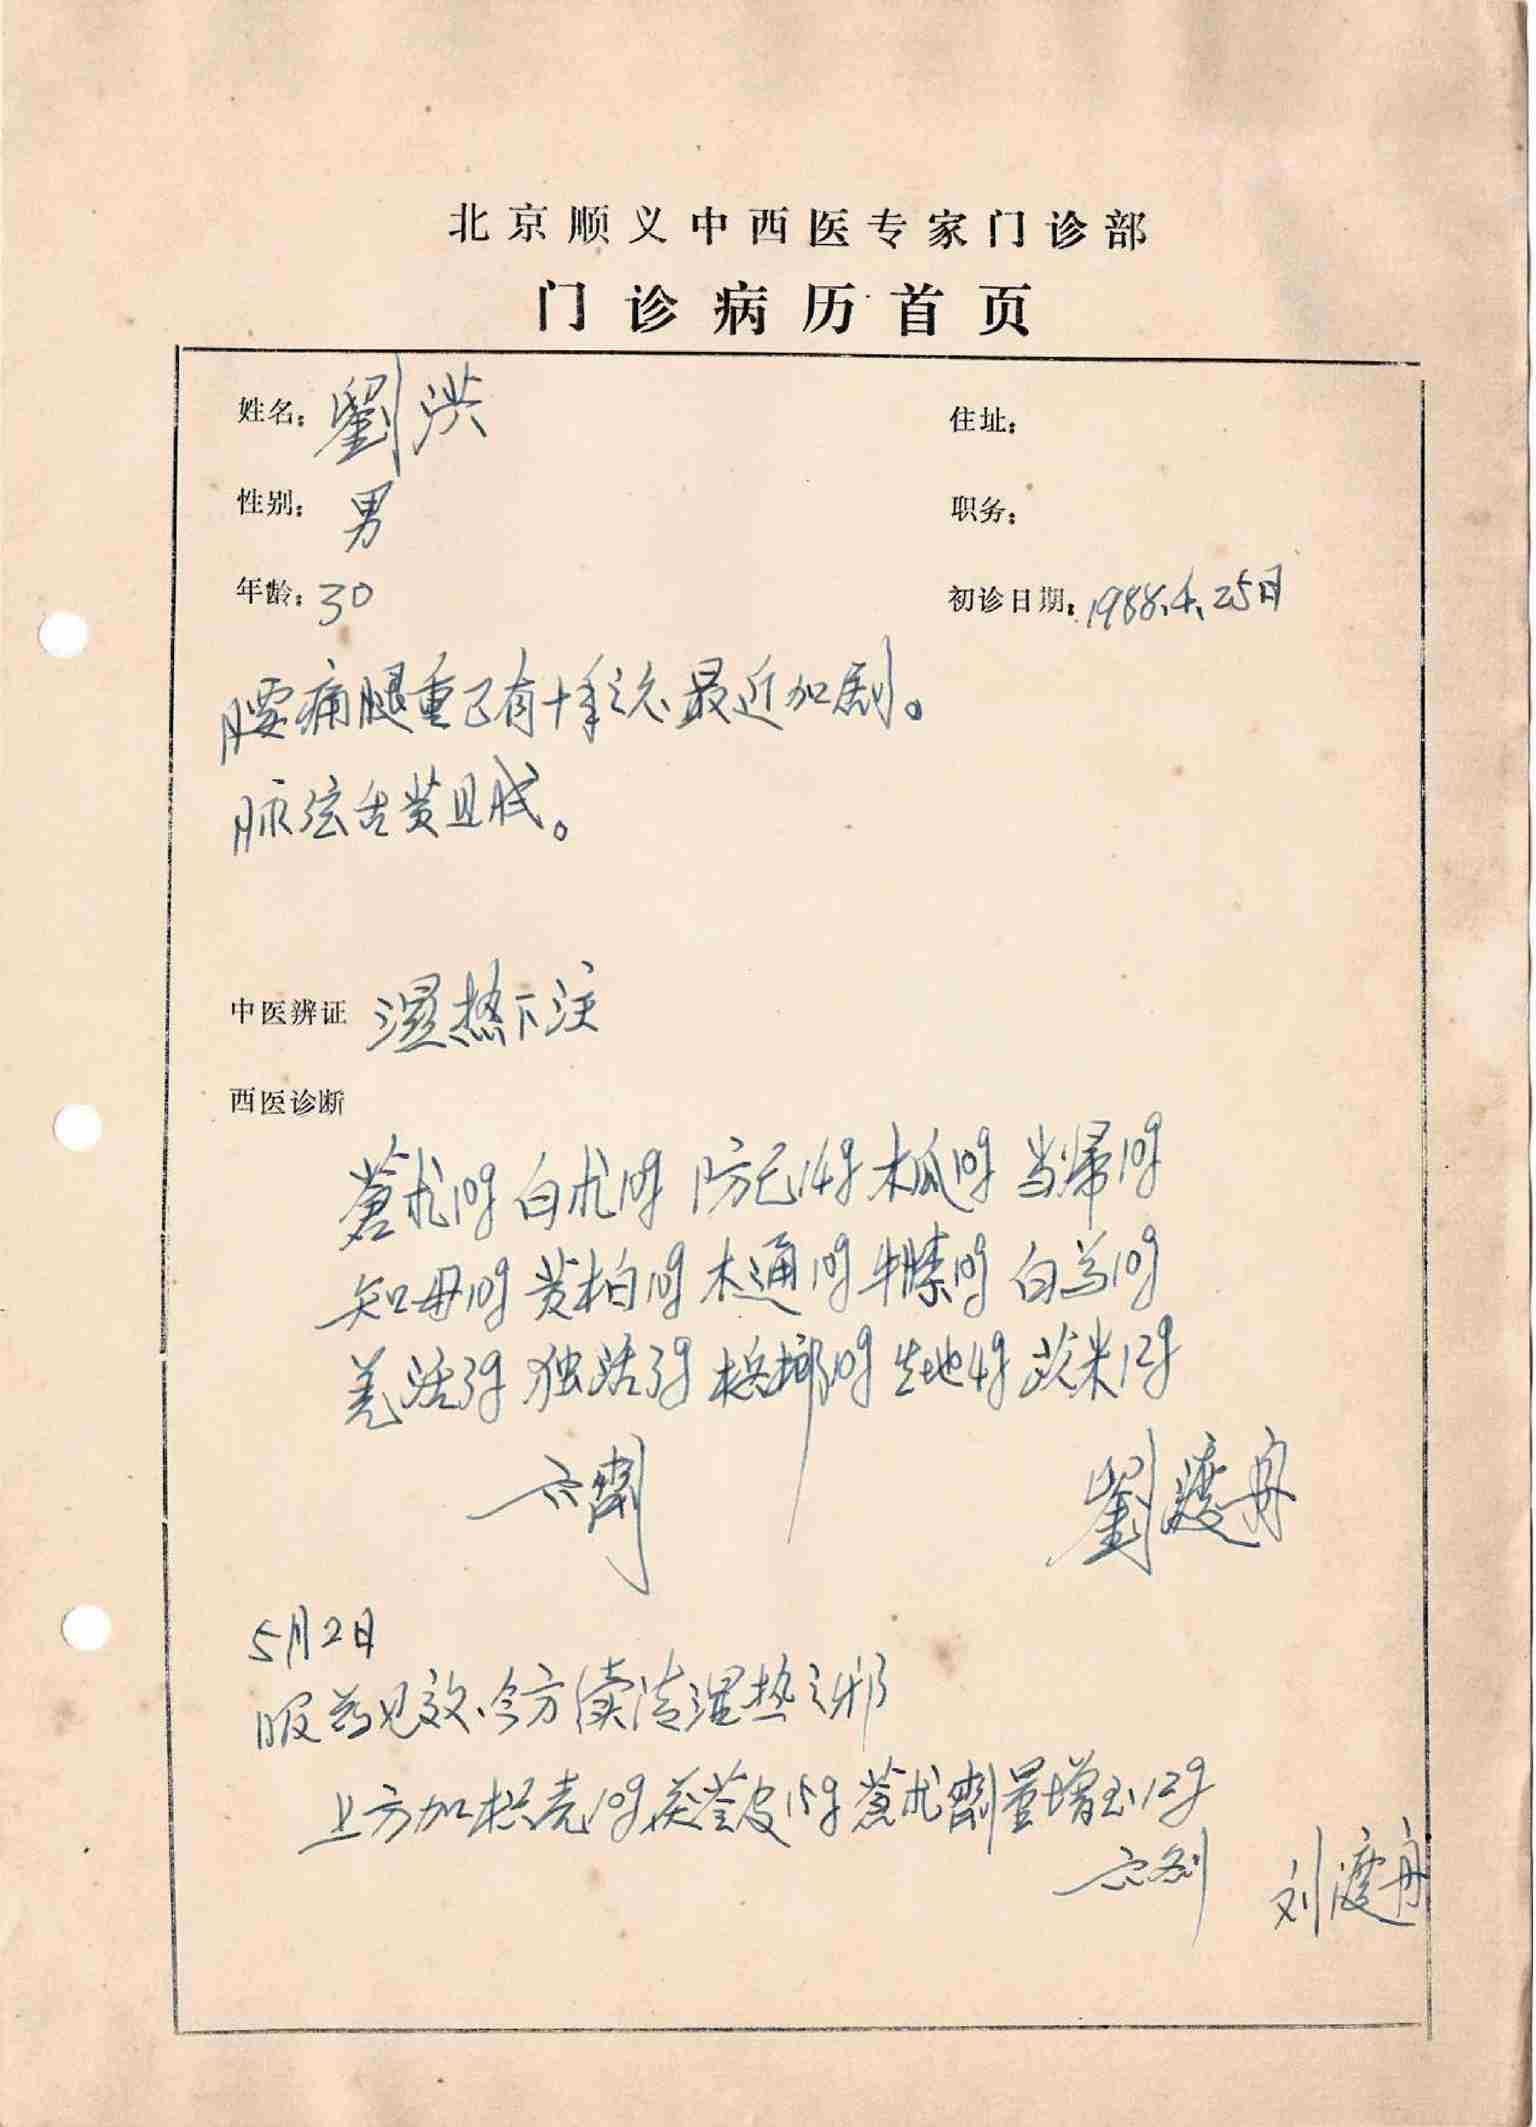 北京顺义中西医专家门诊部
门诊病历首页
姓名：劉洪
住址：
性别：男
职务：
年龄：30
初诊日期：1988.4.25日
腰痛腿重已有十年之久，最近加剧。
脉弦舌黄且腻。
中医辨证 湿热下注
西医诊断
蒼朮10g 白朮10g 防己14g 木瓜10g 当帰10g
知母10g 黄柏10g 木通10g 牛膝10g 白芍10g
羌活3g 独活3g 槟榔10g 生地4g 苡米12g
六劑
劉渡舟
5月2日
服药见效，今方续清湿热之邪
上方加枳壳10g 茯苓皮15g 蒼朮劑量增至12g
六剂 刘渡舟